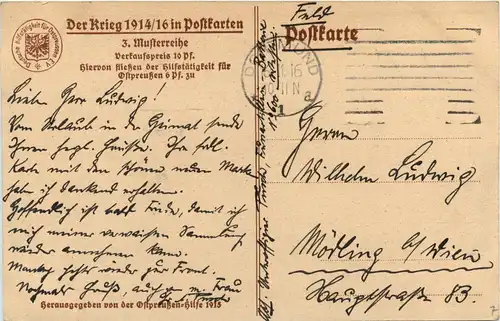 Der Krieg 1914/16 in Postkarten
3. Musterreihe
Verkaufspreis 10 Pf.
Hiervon fließen der Hilfstätigkeit für
Ostpreußen 6 Pf. zu
Lieber Herr Ludwig!
Vom Urlaub in der Heimat sende
Ihnen hrzl. Grüße. Ihre frdl.
Karte mit den schönen neuen Marken
habe ich dankend erhalten.
Hoffentlich ist bald Friede, damit ich
mich meiner verwaisten Sammlung
wieder annehmen kann.
Montag geht's wieder zur Front.
Nochmals Gruß, auch v. m. Frau
Herausgegeben von der Ostpreußen-Hilfe 1915
Feld
Postkarte
DORTMUND
1
a
Herrn
Wilhelm Ludwig
Mödling b/Wien
Hauptstraße 83.